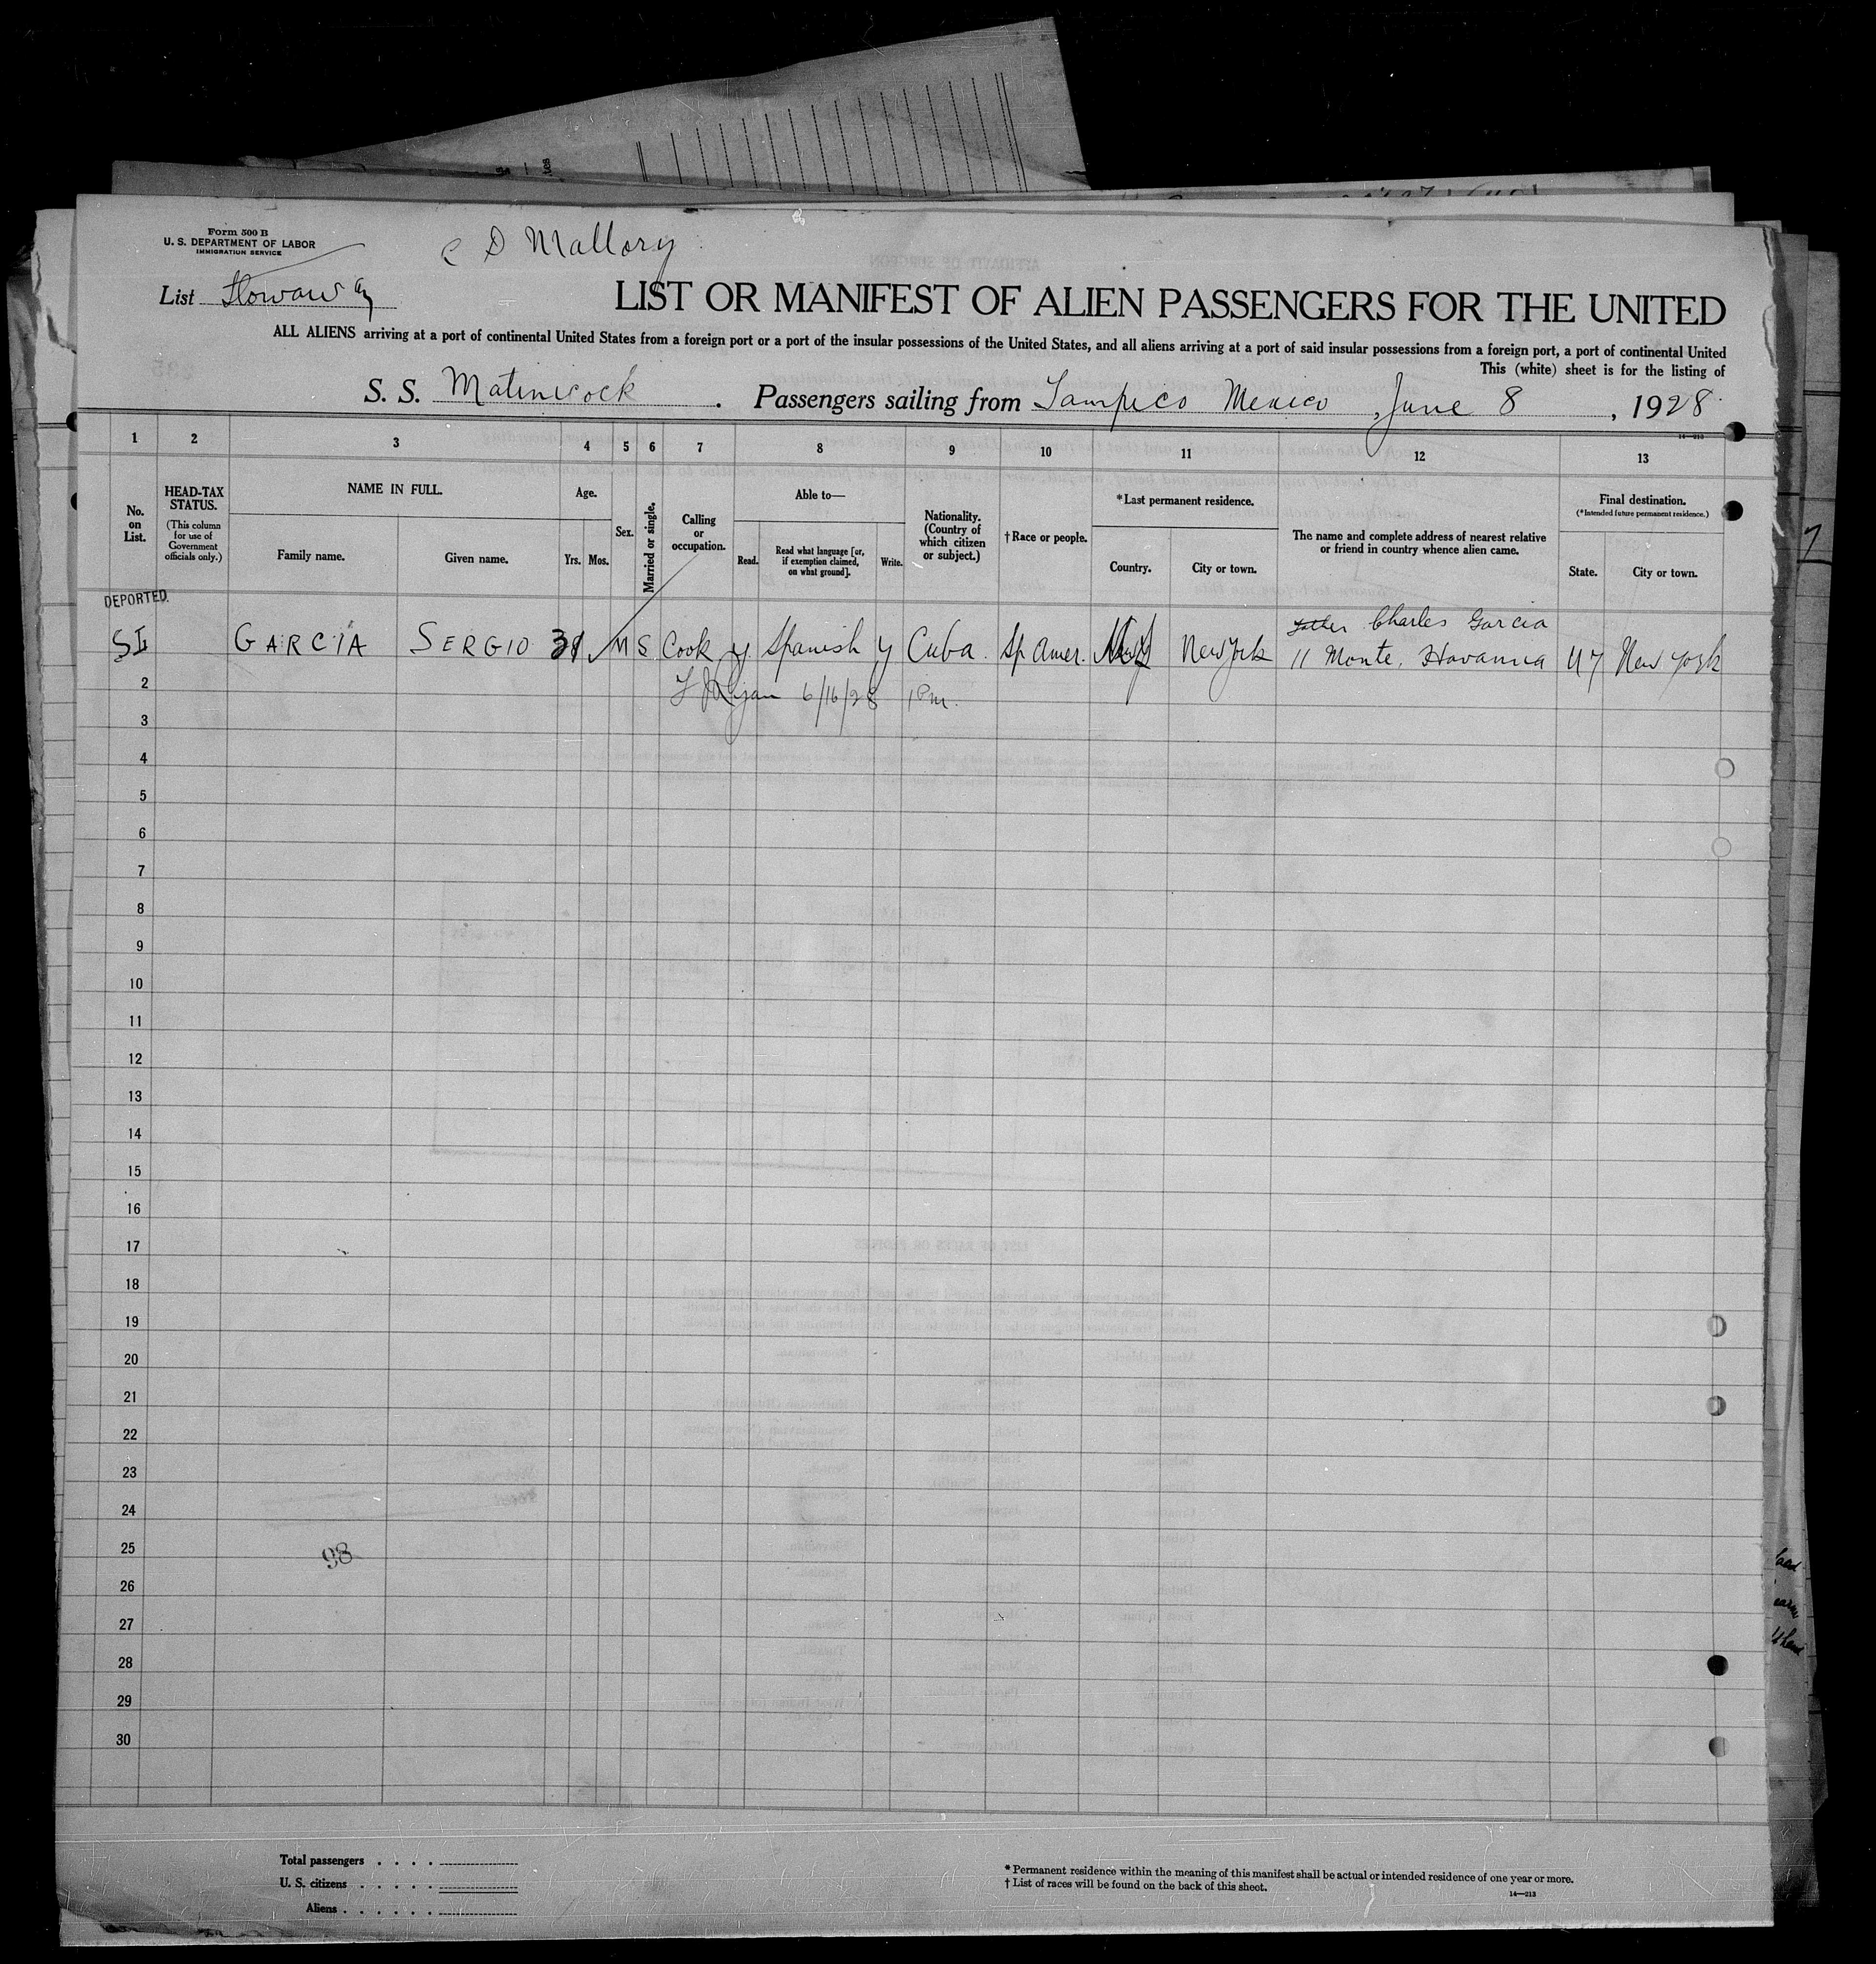 Form 500 B
U. S. DEPARTMENT OF LABOR
IMMIGRATION SERVICE
C D Mallory
List Stowaway
LIST OR MANIFEST OF ALIEN PASSENGERS FOR THE UNITED
ALL ALIENS arriving at a port of continental United States from a foreign port or a port of the insular possessions of the United States, and all aliens arriving at a port of said insular possessions from a foreign port, a port of continental United
This (white) sheet is for the listing of
S. S. Matinicock . Passengers sailing from Tampico Mexico , June 8 , 1928
14—213
1 2 3 4 5 6 7 8 9 10 11 12 13
No. on List.
HEAD-TAX STATUS.
(This column for use of Government officials only.)
NAME IN FULL.
Family name.
Given name.
Age.
Yrs. Mos.
Sex.
Married or single.
Calling or occupation.
Able to—
Read.
Read what language [or, if exemption claimed, on what ground].
Write.
Nationality. (Country of which citizen or subject.)
†Race or people.
*Last permanent residence.
Country.
City or town.
The name and complete address of nearest relative or friend in country whence alien came.
Final destination.
(*Intended future permanent residence.)
State.
City or town.
DEPORTED.
father Charles Garcia
SI GARCIA SERGIO 31 M S Cook y Spanish y Cuba Sp Amer. New York 11 Monte, Havanna NY New York
2 6/16/28 1 Pm.
3
4
5
6
7
8
9
10
11
12
13
14
15
16
17
18
19
20
21
22
23
24
25
98
26
27
28
29
30
Total passengers . . . .
U. S. citizens . . . . .
Aliens . . . . . .
* Permanent residence within the meaning of this manifest shall be actual or intended residence of one year or more.
† List of races will be found on the back of this sheet.
14—213